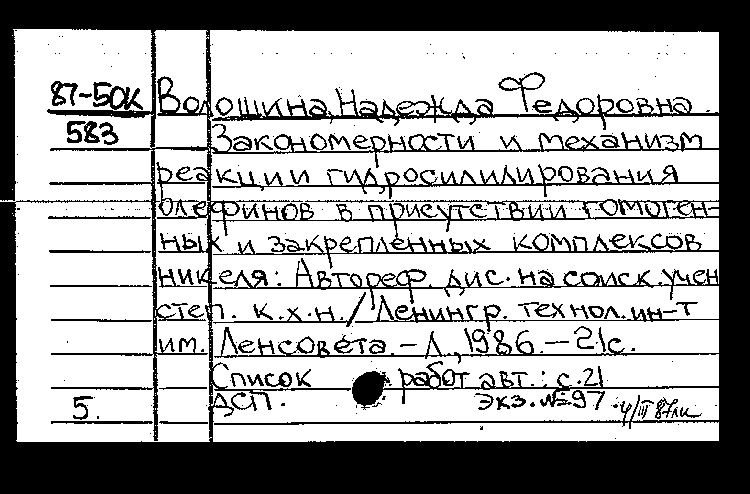 87-50К Волошина, Надежда Федоровна.
583 Закономерности и механизм
реакции гидросилилирования
олефинов в присутствии гомоген-
ных и закрепленных комплексов
никеля: Автореф. дис. на соиск. учен
степ. к.х.н./Ленингр. технол. ин-т
им. Ленсовета. - Л., 1986. - 21с.
Список работ авт.: с.21
5. ДСП. Экз. №97. 4/III 87